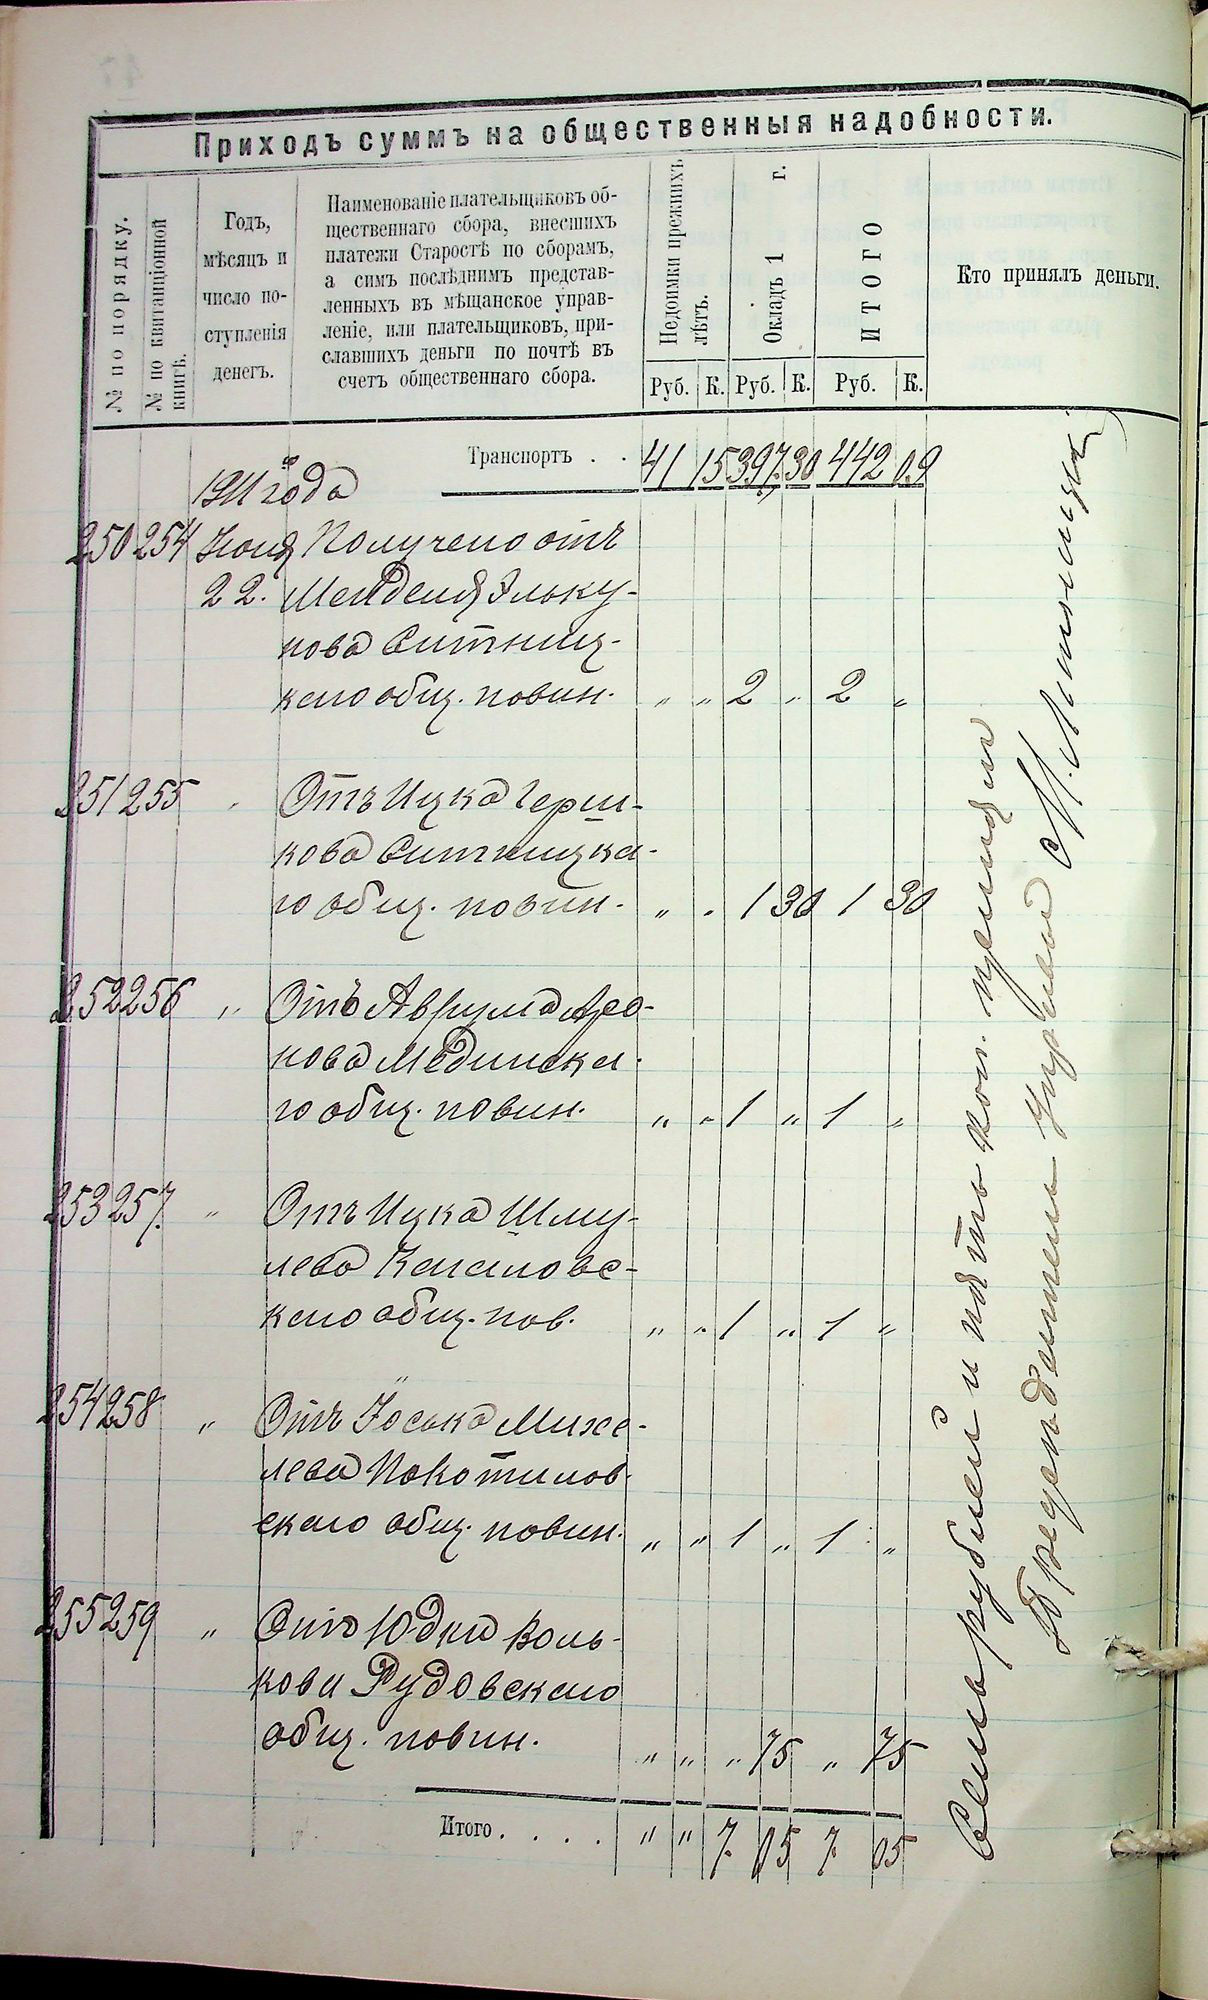 Приходъ суммъ на общественныя надобности.
№ по порядку.
№ по квитанціонной
книгѣ.
Годъ,
мѣсяцъ и
число по-
ступленія
денегъ.
Наименованіе плательщиковъ об-
щественнаго сбора, внесшихъ
платежи Старостѣ по сборамъ,
а симъ послѣднимъ представ-
ленныхъ въ мѣщанское управ-
леніе, или плательщиковъ, при-
славшихъ деньги по почтѣ въ
счетъ общественнаго сбора.
Недоимки прежнихъ
лѣтъ.
Окладъ 1 г.
ИТОГО
Кто принялъ деньги.
Руб. К. Руб. К. Руб. К.
Транспортъ . . 41 15 397. 30 442 09
1911 года
250 254 Іюня Получено отъ
22. Менделя Эльку-
нова Ситниц-
каго общ. повин. „ „ 2 „ 2 „
251 255 „ Отъ Ицка Герш-
кова Ситницка-
го общ. повин. „ „ 1 30 1 30
252 256 „ Отъ Аврума
нова Мединска-
го общ. повин. „ „ 1 „ 1 „
253 257. „ Отъ Ицка Шму-
лева
каго общ. пов. „ „ 1 „ 1 „
254 258 „ Отъ Іоська Михе-
лева Покотилов-
скаго общ. повин. „ „ 1 „ 1 „
255 259 „ Отъ Юдки Воль-
кова Рудовскаго
общ. повин. „ „ „ 75 „ 75
Итого . . . . „ „ 7. 05 7. 05
Семь рублей и пять коп. принялъ
Предсѣдатель Управы М.